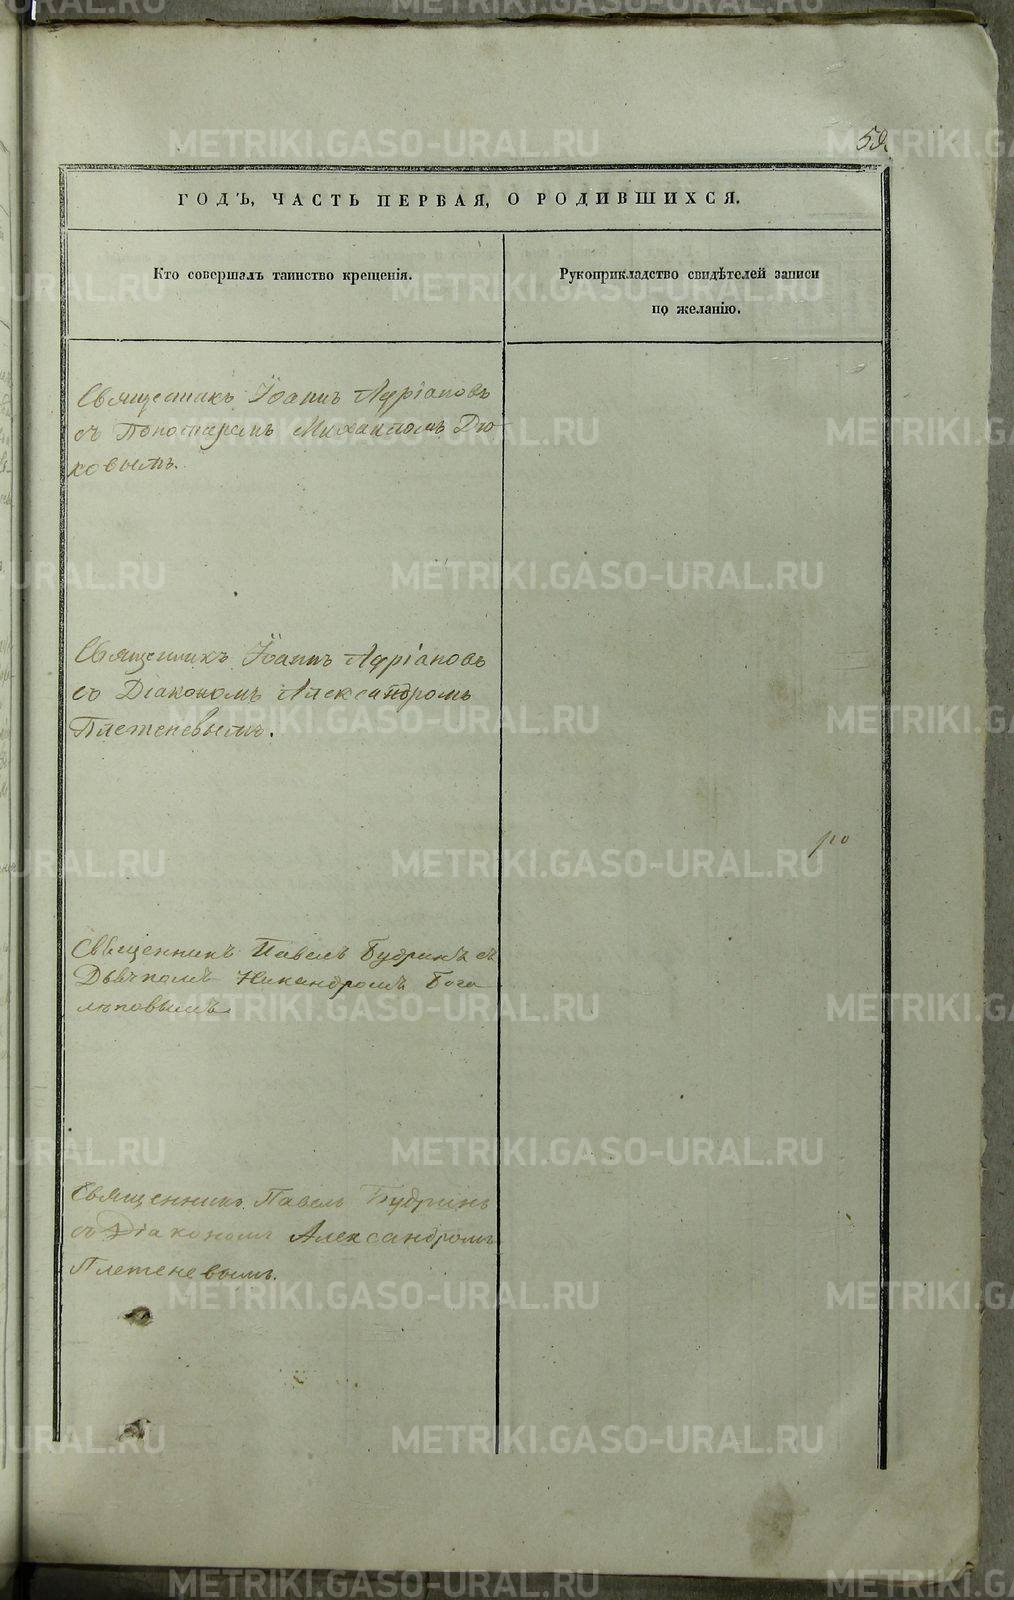 59.
ГОДЪ, ЧАСТЬ ПЕРВАЯ, О РОДИВШИХСЯ.
Кто совершалъ таинство крещенія.
Рукоприкладство свидѣтелей записи
по желанію.
Священникъ Іоаннъ Адріановъ
съ Пономаремъ Михаиломъ Дю-
ковымъ.
Священникъ Іоаннъ Адріановъ
со Діакономъ Александромъ
Плетеневымъ.
Священникъ Павелъ Будринъ съ
Дьячкомъ Никандромъ Бого
лѣповымъ
Священникъ Павелъ Будринъ
съ Діакономъ Александромъ
Плетеневымъ.
METRIKI.GASO-URAL.RU